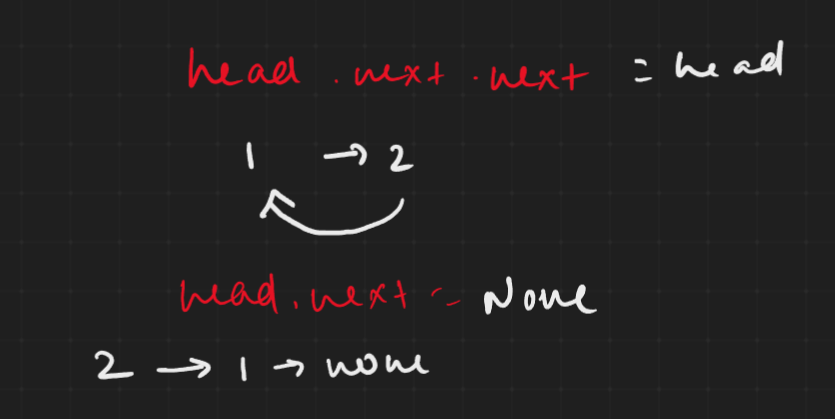 head.next.next = head
1 → 2
head.next = None
2 → 1 → none